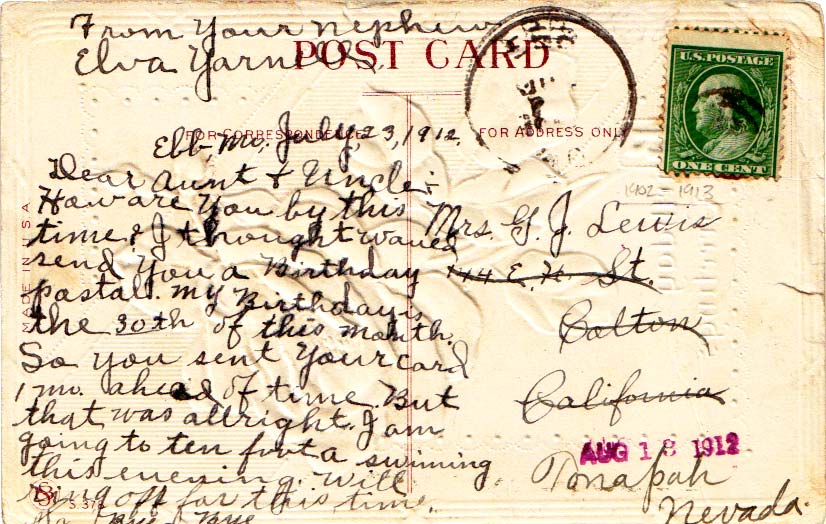 From Your Nephew
Elva Yarnell
POST CARD
U.S. POSTAGE
ONE CENT
FOR CORRESPONDENCE
FOR ADDRESS ONLY
1902-1913
MADE IN U.S.A.
Ebb, Mo, July, 23, 1912.
Dear Aunt & Uncle:
How are You by this
time? I thought
send You a Birthday
postal. My Birthday is
the 30th of this month.
So you sent Your card
1 mo. ahead of time. But
that was allright. I am
going to ten foot a swiming
this evening. Will
ring off for this time.
Bye Bye
S. 37
Mrs. G. J. Lewis
E. H. St.
Colton
California
AUG 18 1912
Tonapah
Nevada.